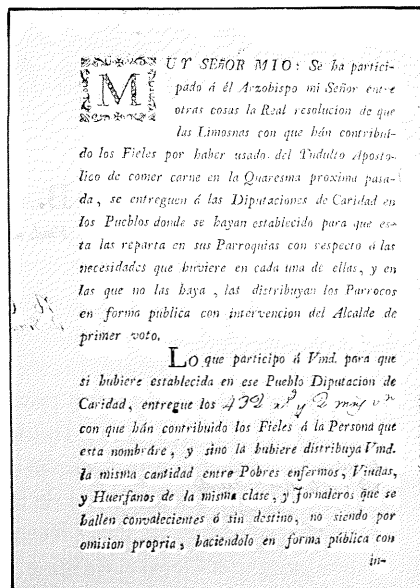 MUY SEÑOR MIO: Se ha partici-
pado á él Arzobispo mi Señor entre
otras cosas la Real resolucion de que
las Limosnas con que hán contribui-
do los Fieles por haber usado del Yndulto Aposto-
lico de comer carne en la Quaresma proxima pasa-
da, se entreguen á las Diputaciones de Caridad en
los Pueblos donde se hayan establecido para que es-
ta las reparta en sus Parroquias con respecto á las
necesidades que huviere en cada una de ellas, y en
las que no las haya, las distribuyan los Parrocos
en forma publica con intervencion del Alcalde de
primer voto.
Lo que participo á Vmd. para que
si hubiere establecida en ese Pueblo Diputacion de
Caridad, entregue los 432 rs y 2 mrs vn
con que hán contribuido los Fieles á la Persona que
esta nombráre, y sino la hubiere distribuya Vmd.
la misma cantidad entre Pobres enfermos, Viudas,
y Huerfanos de la misma clase, y Jornaleros que se
hallen convalecientes ó sin destino, no siendo por
omision propria, haciéndolo en forma pública con
in-